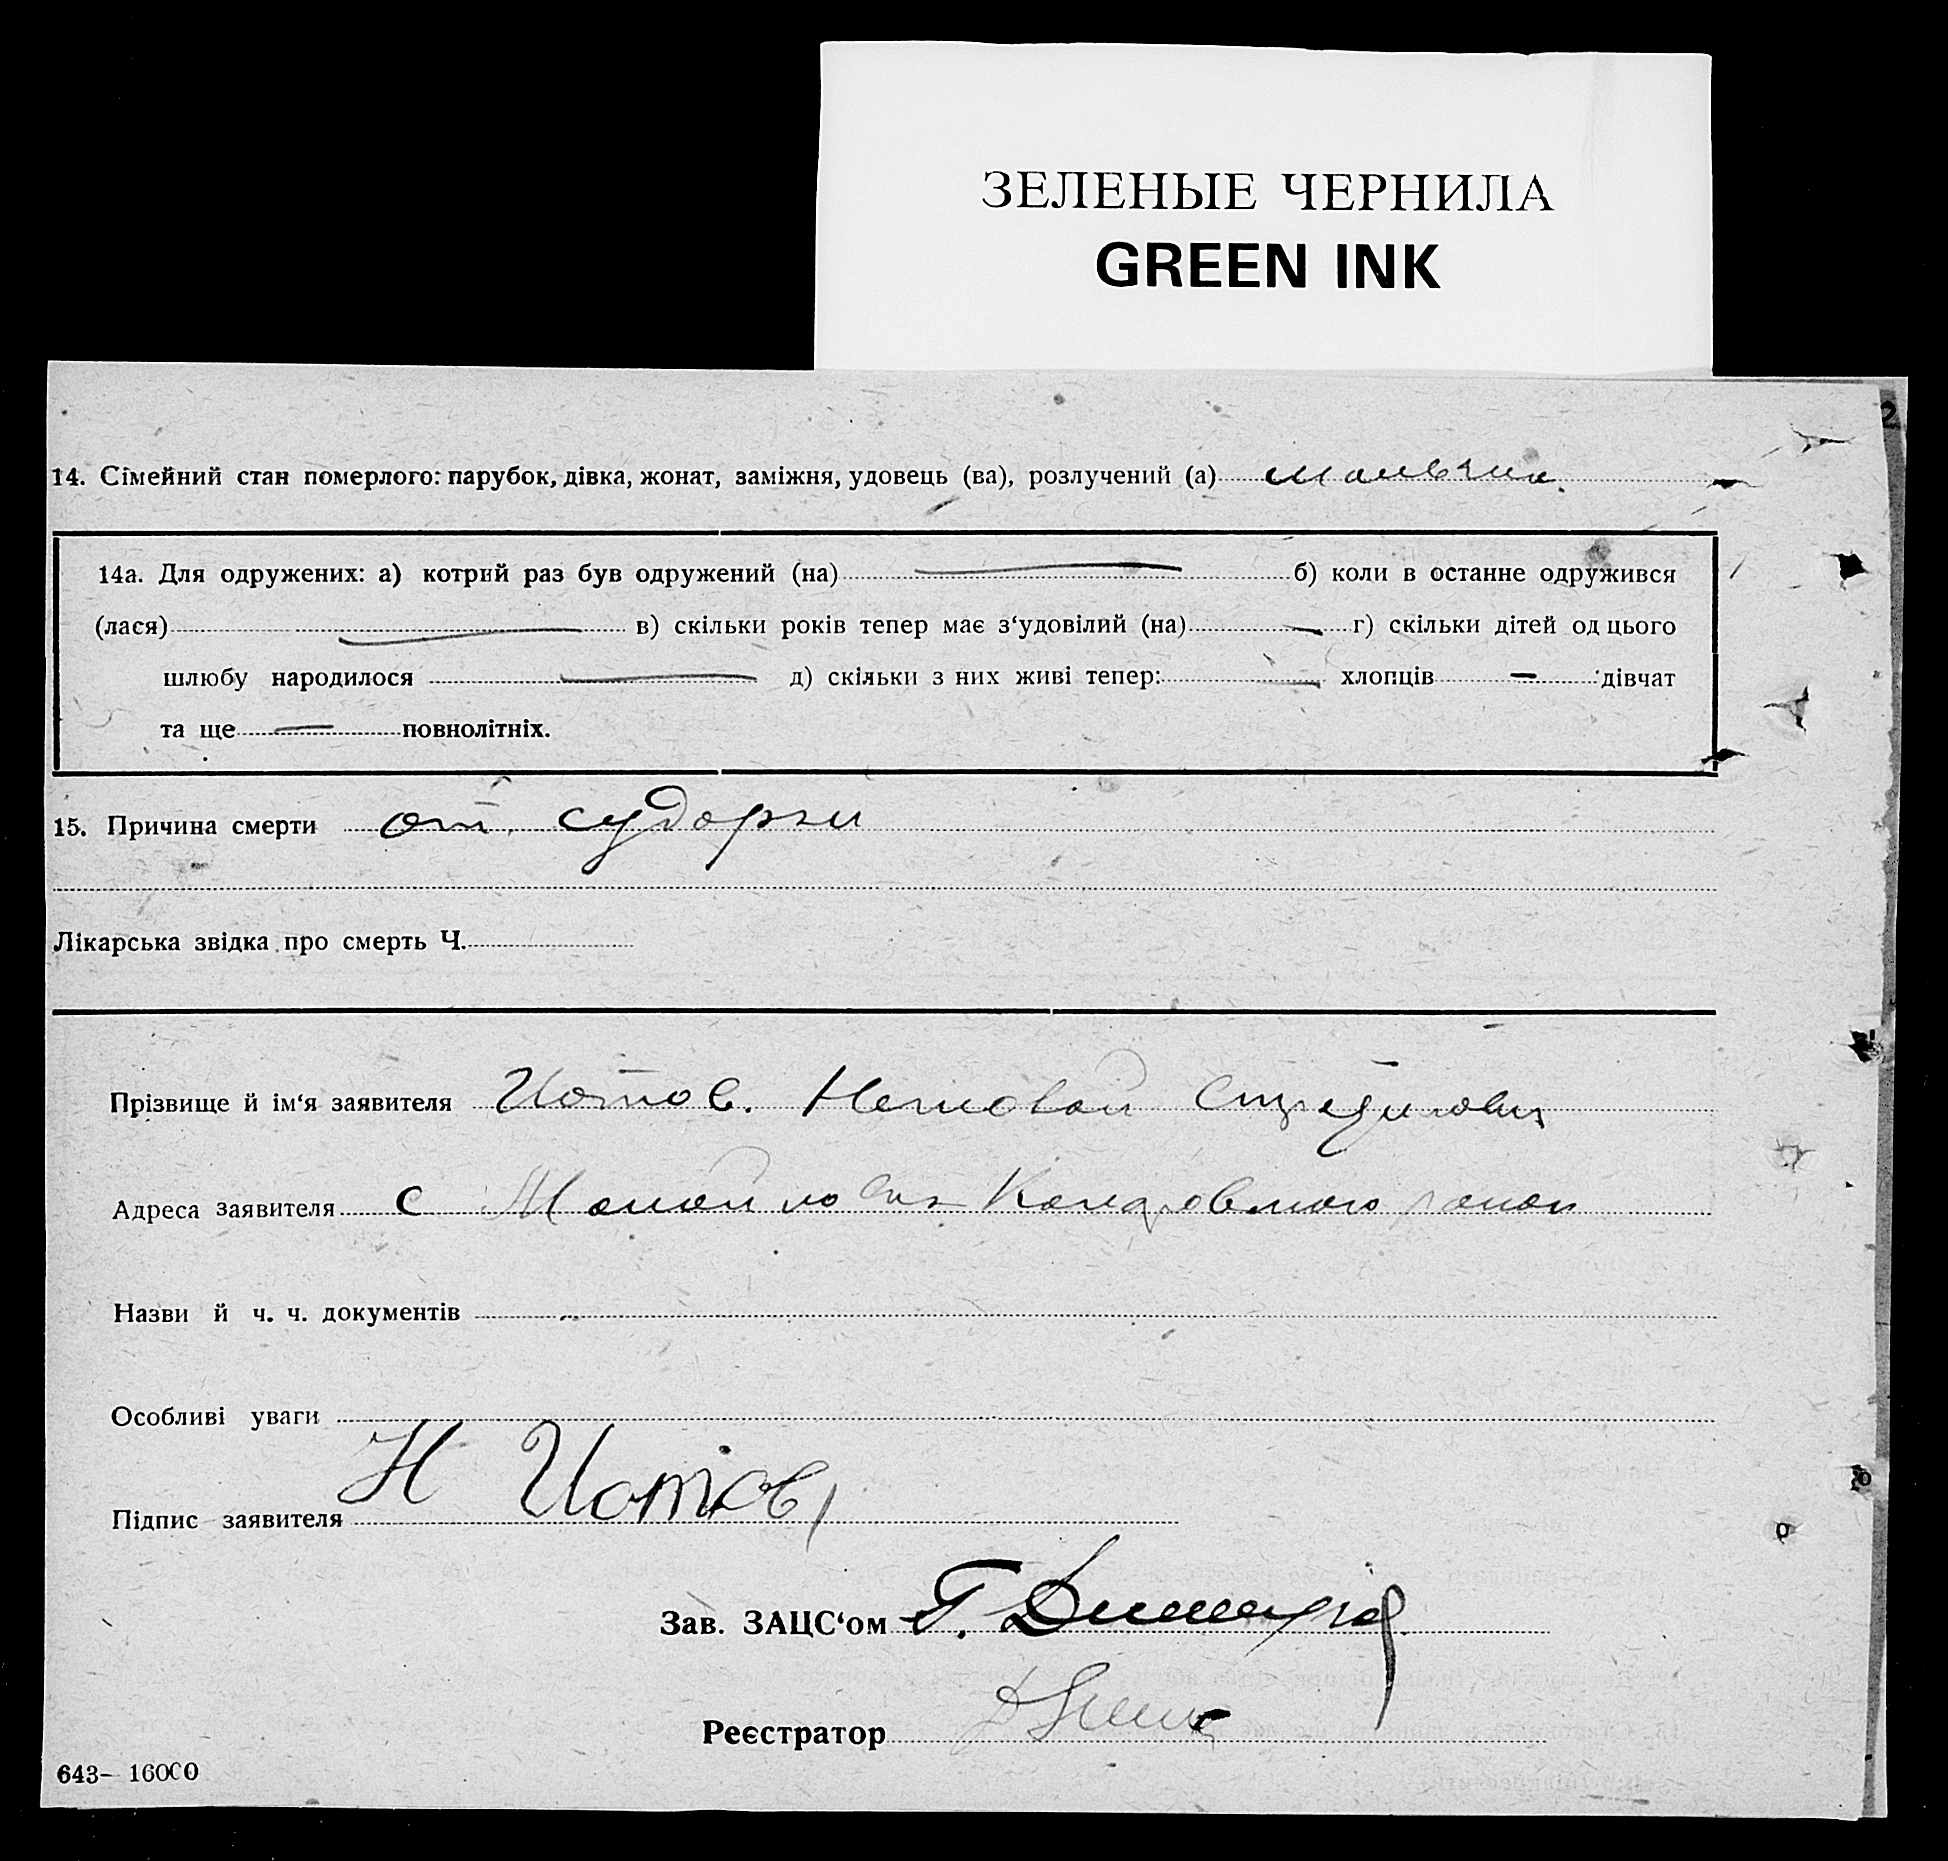 ЗЕЛЕНЫЕ ЧЕРНИЛА
GREEN INK
14. Сімейний стан померлого: парубок, дівка, жонат, заміжня, удовець (ва), розлучений (а) мальчик.
14а. Для одружених: а) котрий раз був одружений (на) — б) коли в останне одружився
(лася) — в) скільки років тепер має з‘удовілий (на) — г) скільки дітей од цього
шлюбу народилося — д) скільки з них живі тепер: — хлопців — дівчат
та ще — повнолітніх.
15. Причина смерти от судорги
Лікарська звідка про смерть Ч.
Прізвище й ім‘я заявителя Иотов.
Адреса заявителя с
Назви й ч. ч. документів
Особливі уваги
Підпис заявителя Н Иотов
Зав. ЗАЦС‘ом Г.
Реєстратор
643— 16000